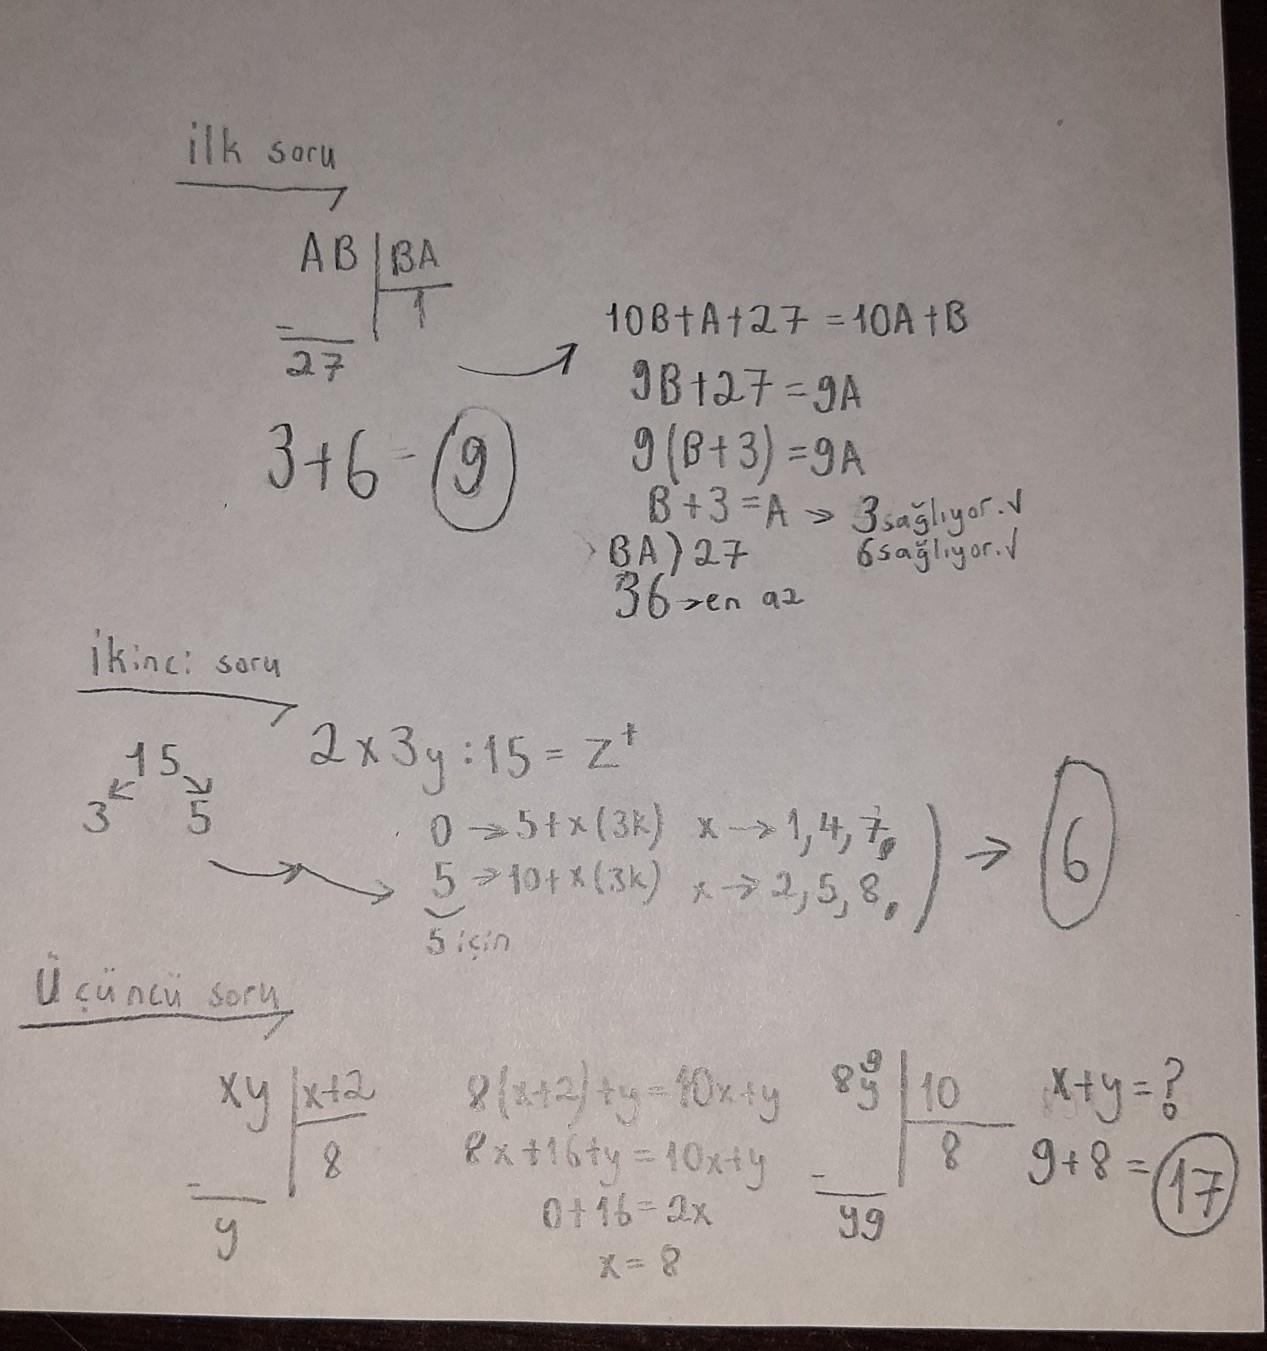 ilk soru
AB | BA
1
-
27
10B+A+27=10A+B
9B+27=9A
9(B+3)=9A
B+3=A → 3 sağlıyor. √
BA > 27 6 sağlıyor. √
36 → en az
3+6=9
İkinci soru
15
3 5
2x3y:15=Z⁺
0 → 5+x(3k) x → 1,4,7,
5 → 10+x(3k) x → 2,5,8,
5 için
→ 6
Üçüncü soru
xy | x+2
8
-
y
8(x+2)+y=10x+y
8x+16+y=10x+y
0+16=2x
x=8
8y 9 | 10
8
-
y9
x+y=?
9+8=17